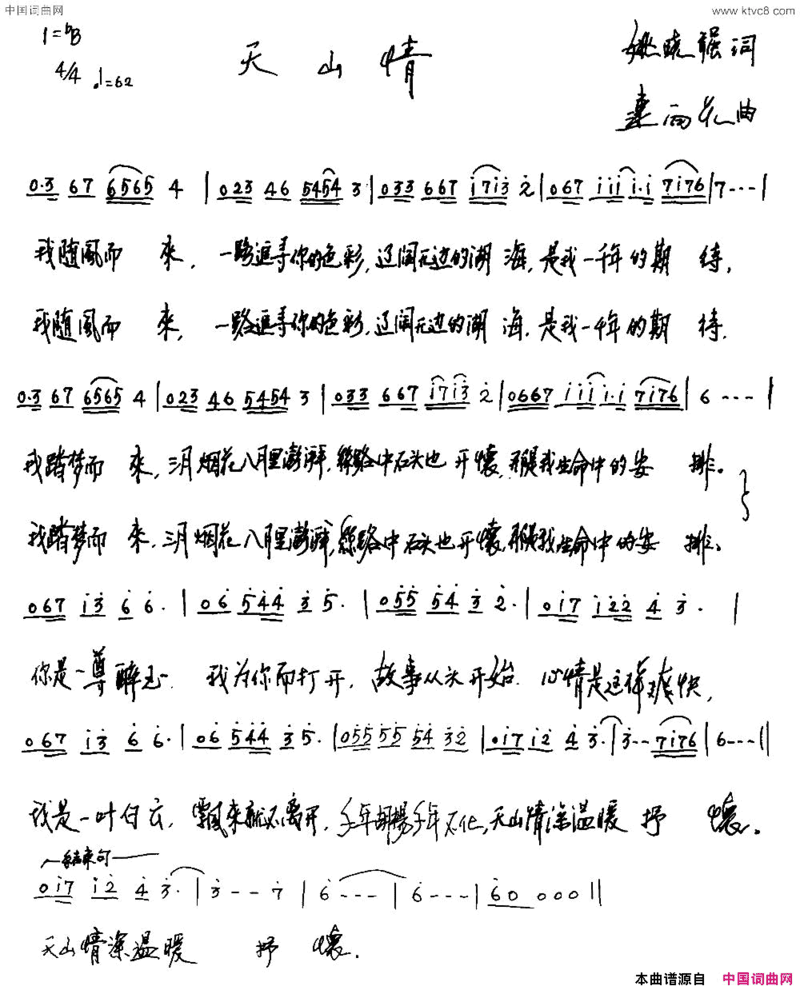 中国词曲网 www.ktvc8.com
1=♭B
4/4 ♩=62
天 山 情
姚晓强词
曲
0·3 67 6565 4 | 023 46 5454 3 | 033 667 i7i3 2 | 067 iii i·i 7i76 | 7--- |
我随风而 来, 一路追寻你的色彩, 辽阔无边的湖 海, 是我一千年的期 待,
我随风而 来, 一路追寻你的色彩, 辽阔无边的湖 海, 是我一千年的期 待,
0·3 67 6565 4 | 023 46 5454 3 | 033 667 i7i3 2 | 0667 iii i·i 7i76 | 6 --- |
我踏梦而 来, 三月烟花八月里澎湃, 丝路中石头也 开怀, 我生命中的安 排。
我踏梦而 来, 三月烟花八月里澎湃, 丝路中石头也开怀, 我生命中的安 排。
067 i3 6 6· | 06 544 3 5· | 055 54 3 2· | 0i7 i22 4 3· |
你是一尊 我为你而打开, 故事从头开始. 心情是这样爽快,
067 i3 6 6· | 06 544 3 5· | 055 55 54 32 | 0i7 i2 4 3· | 3-- 7i76 | 6--- ||
我是一叶白云, 飘来就不离开, 千年胡杨千年不化, 天山情深温暖 抒 怀。
结束句
0i7 i2 4 3· | 3 -- 7 | 6 --- | 6 --- | 60 000 ||
天山情深温暖 抒 怀.
本曲谱源自 中国词曲网